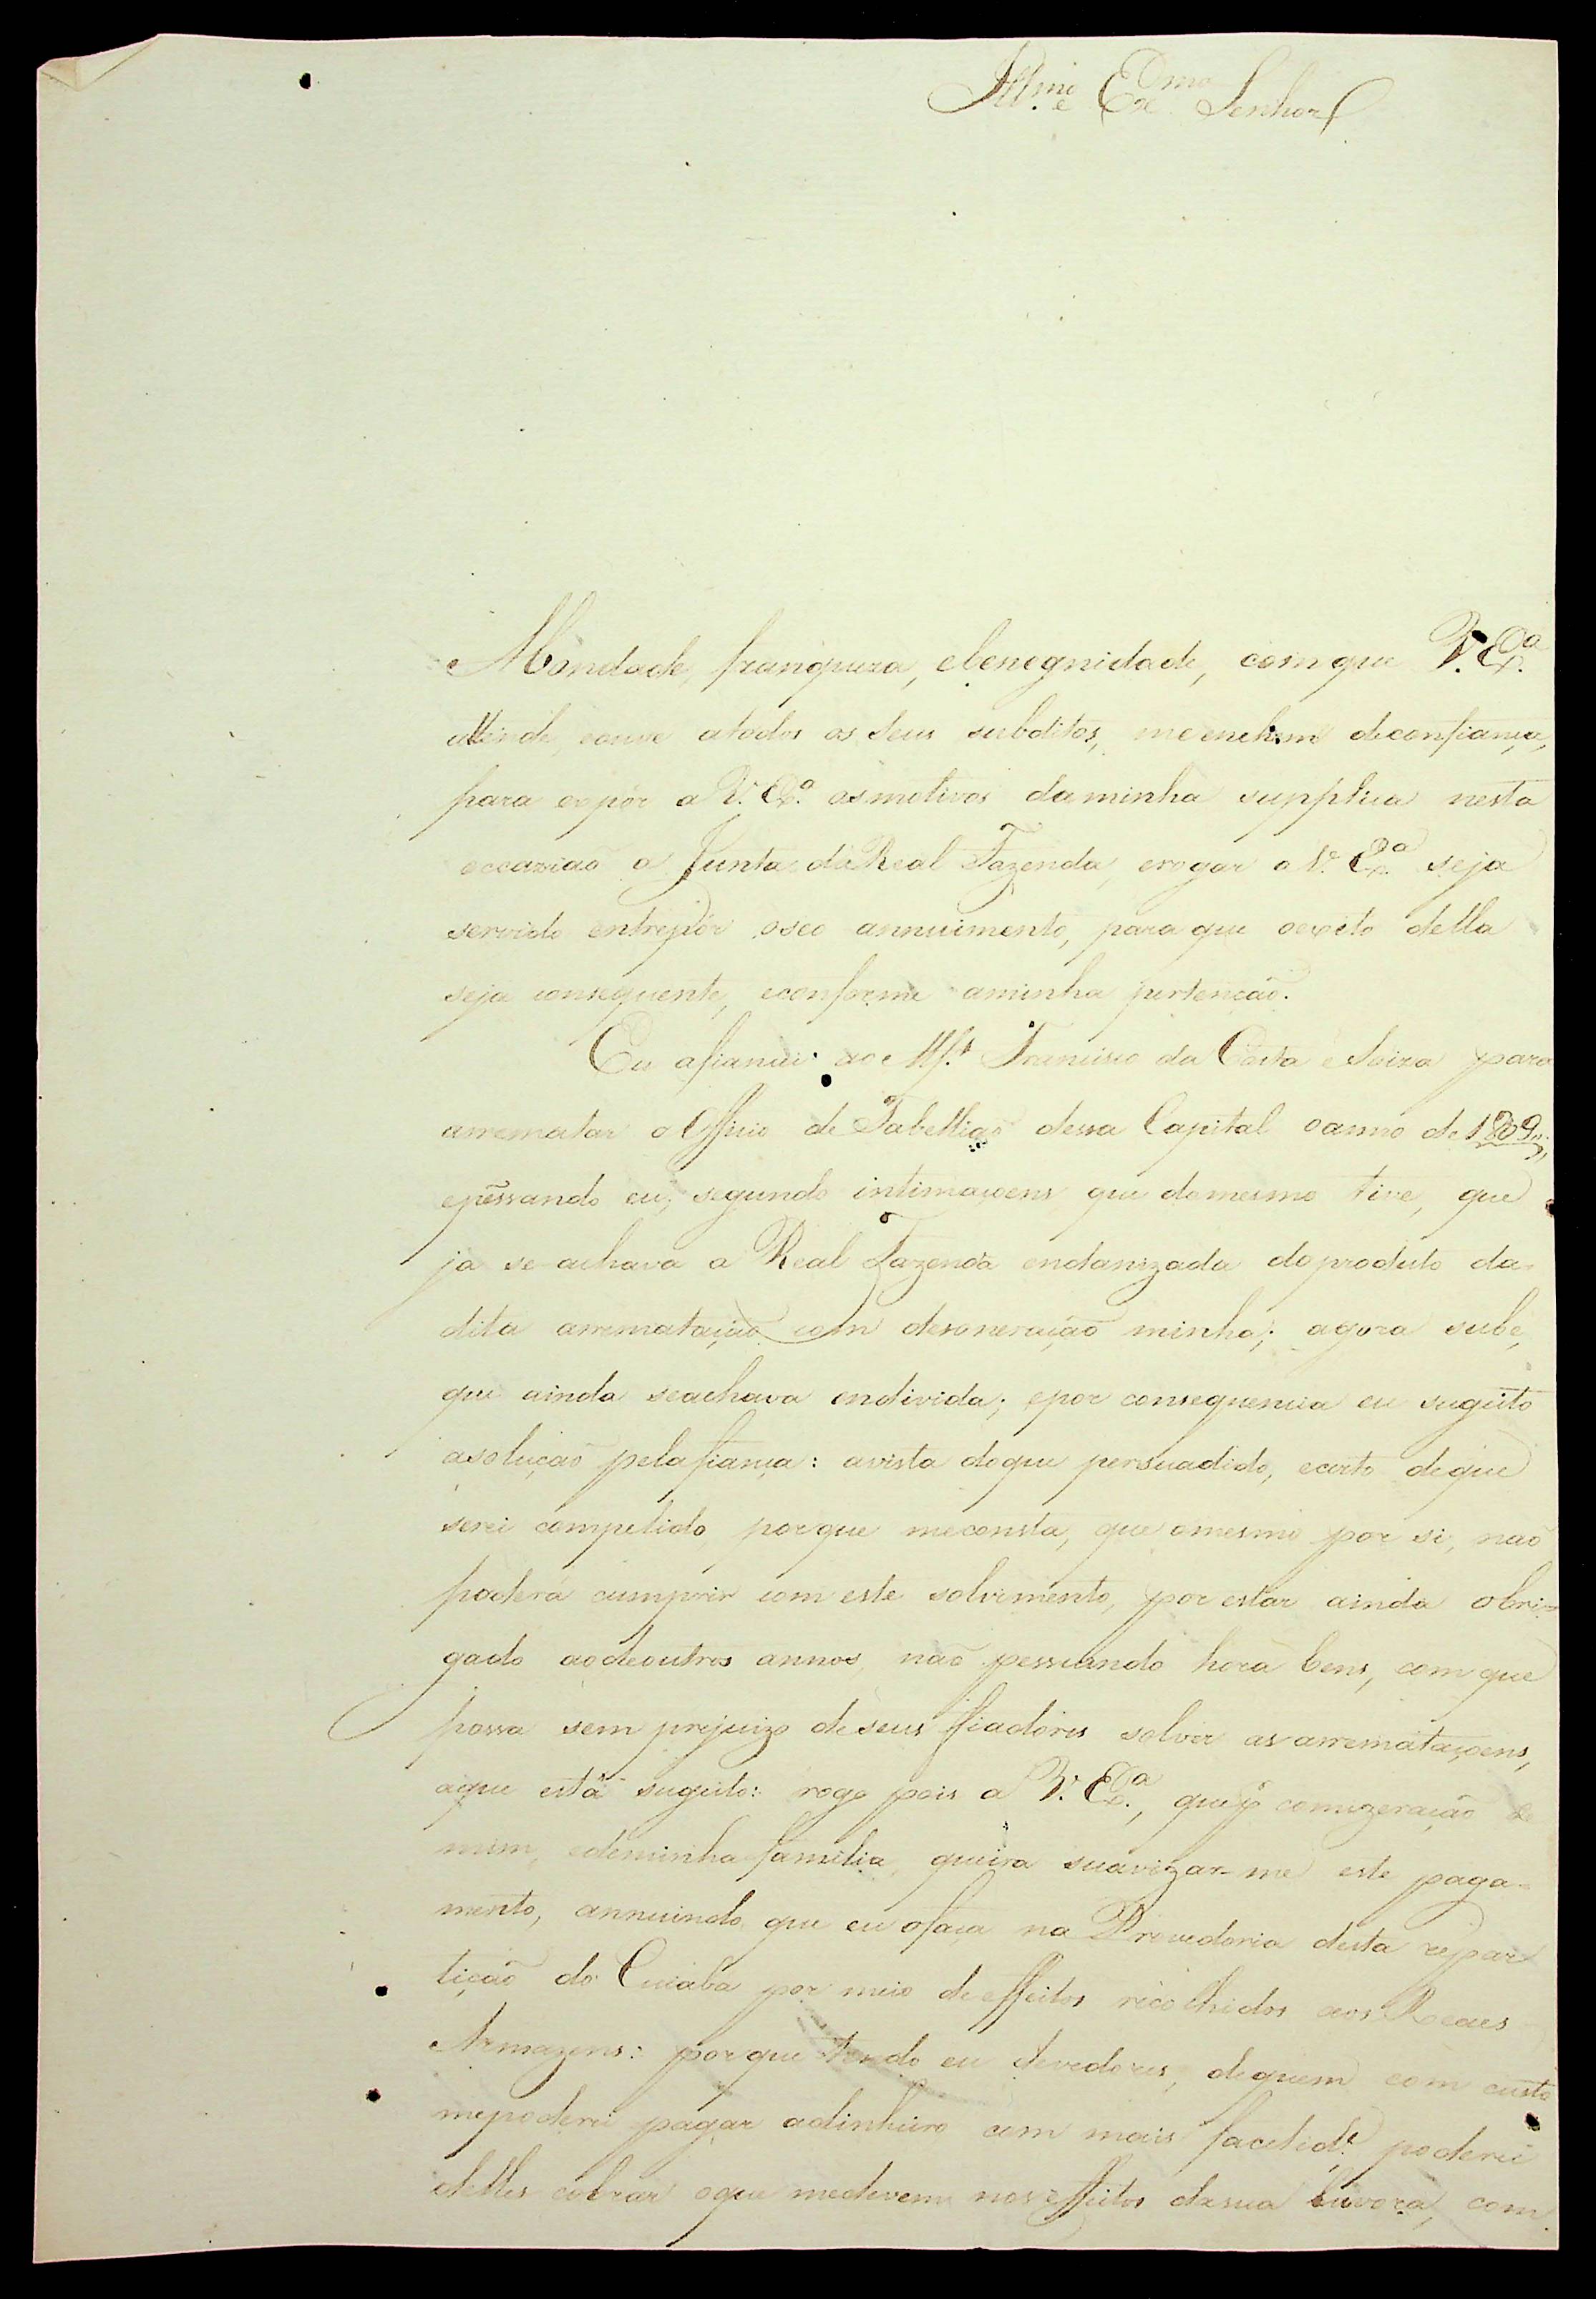 Illmo. e Exmo. Senhor
A bondade, franqueza, ebenegnidade, comque V. Exa.
attende, eouve atodos os Seus subditos, meenchem deconfiança,
para expôr a V. Exa. osmotivos daminha supplica nesta
occazião a Junta daReal Fazenda, erogar a V. Exa. seja
servido entrepôr oseo annuimento, para que oexito della
seja consequente, econforme aminha pertenção.
Eu afiancei ao Alfs. Francisco da Costa e Soiza para
arrematar o Officio de Tabellião dessa Capital oanno de 1809,
epenssando eu, segundo intimaçoens que domesmo tive, que
ja se achava a Real Fazenda endanizada doproduto da
dita arrematação com desoneração minha; agora sube,
que ainda seachava endivida; epor consequencia eu sugeito
asolução pelafiança: avista doque persuadido, ecerto deque
serei compelido, porque meconsta, que omesmo por si, não
poderá cumprir com este solvimento, por estar ainda obri-
gado aodeoutros annos, não pessuindo hora bens, com que
possa sem prejuizo deseus fiadores solver asarremataçoens,
aque está sugeito: rogo pois a V. Exa., que p comizeração de
mim, edeminha familia, queira suavizar-me este paga-
mento, annuindo, que eu ofaça na Provedoria desta repar
tição do Cuiabá por meio deeffeitos recolhidos aos Reaes
Armazens: porque tendo eu devedores, dequem com custo
mepoderei pagar adinheiro com mais facelide. poderei
delles cobrar oque medevem nos effeitos desua lavora, com